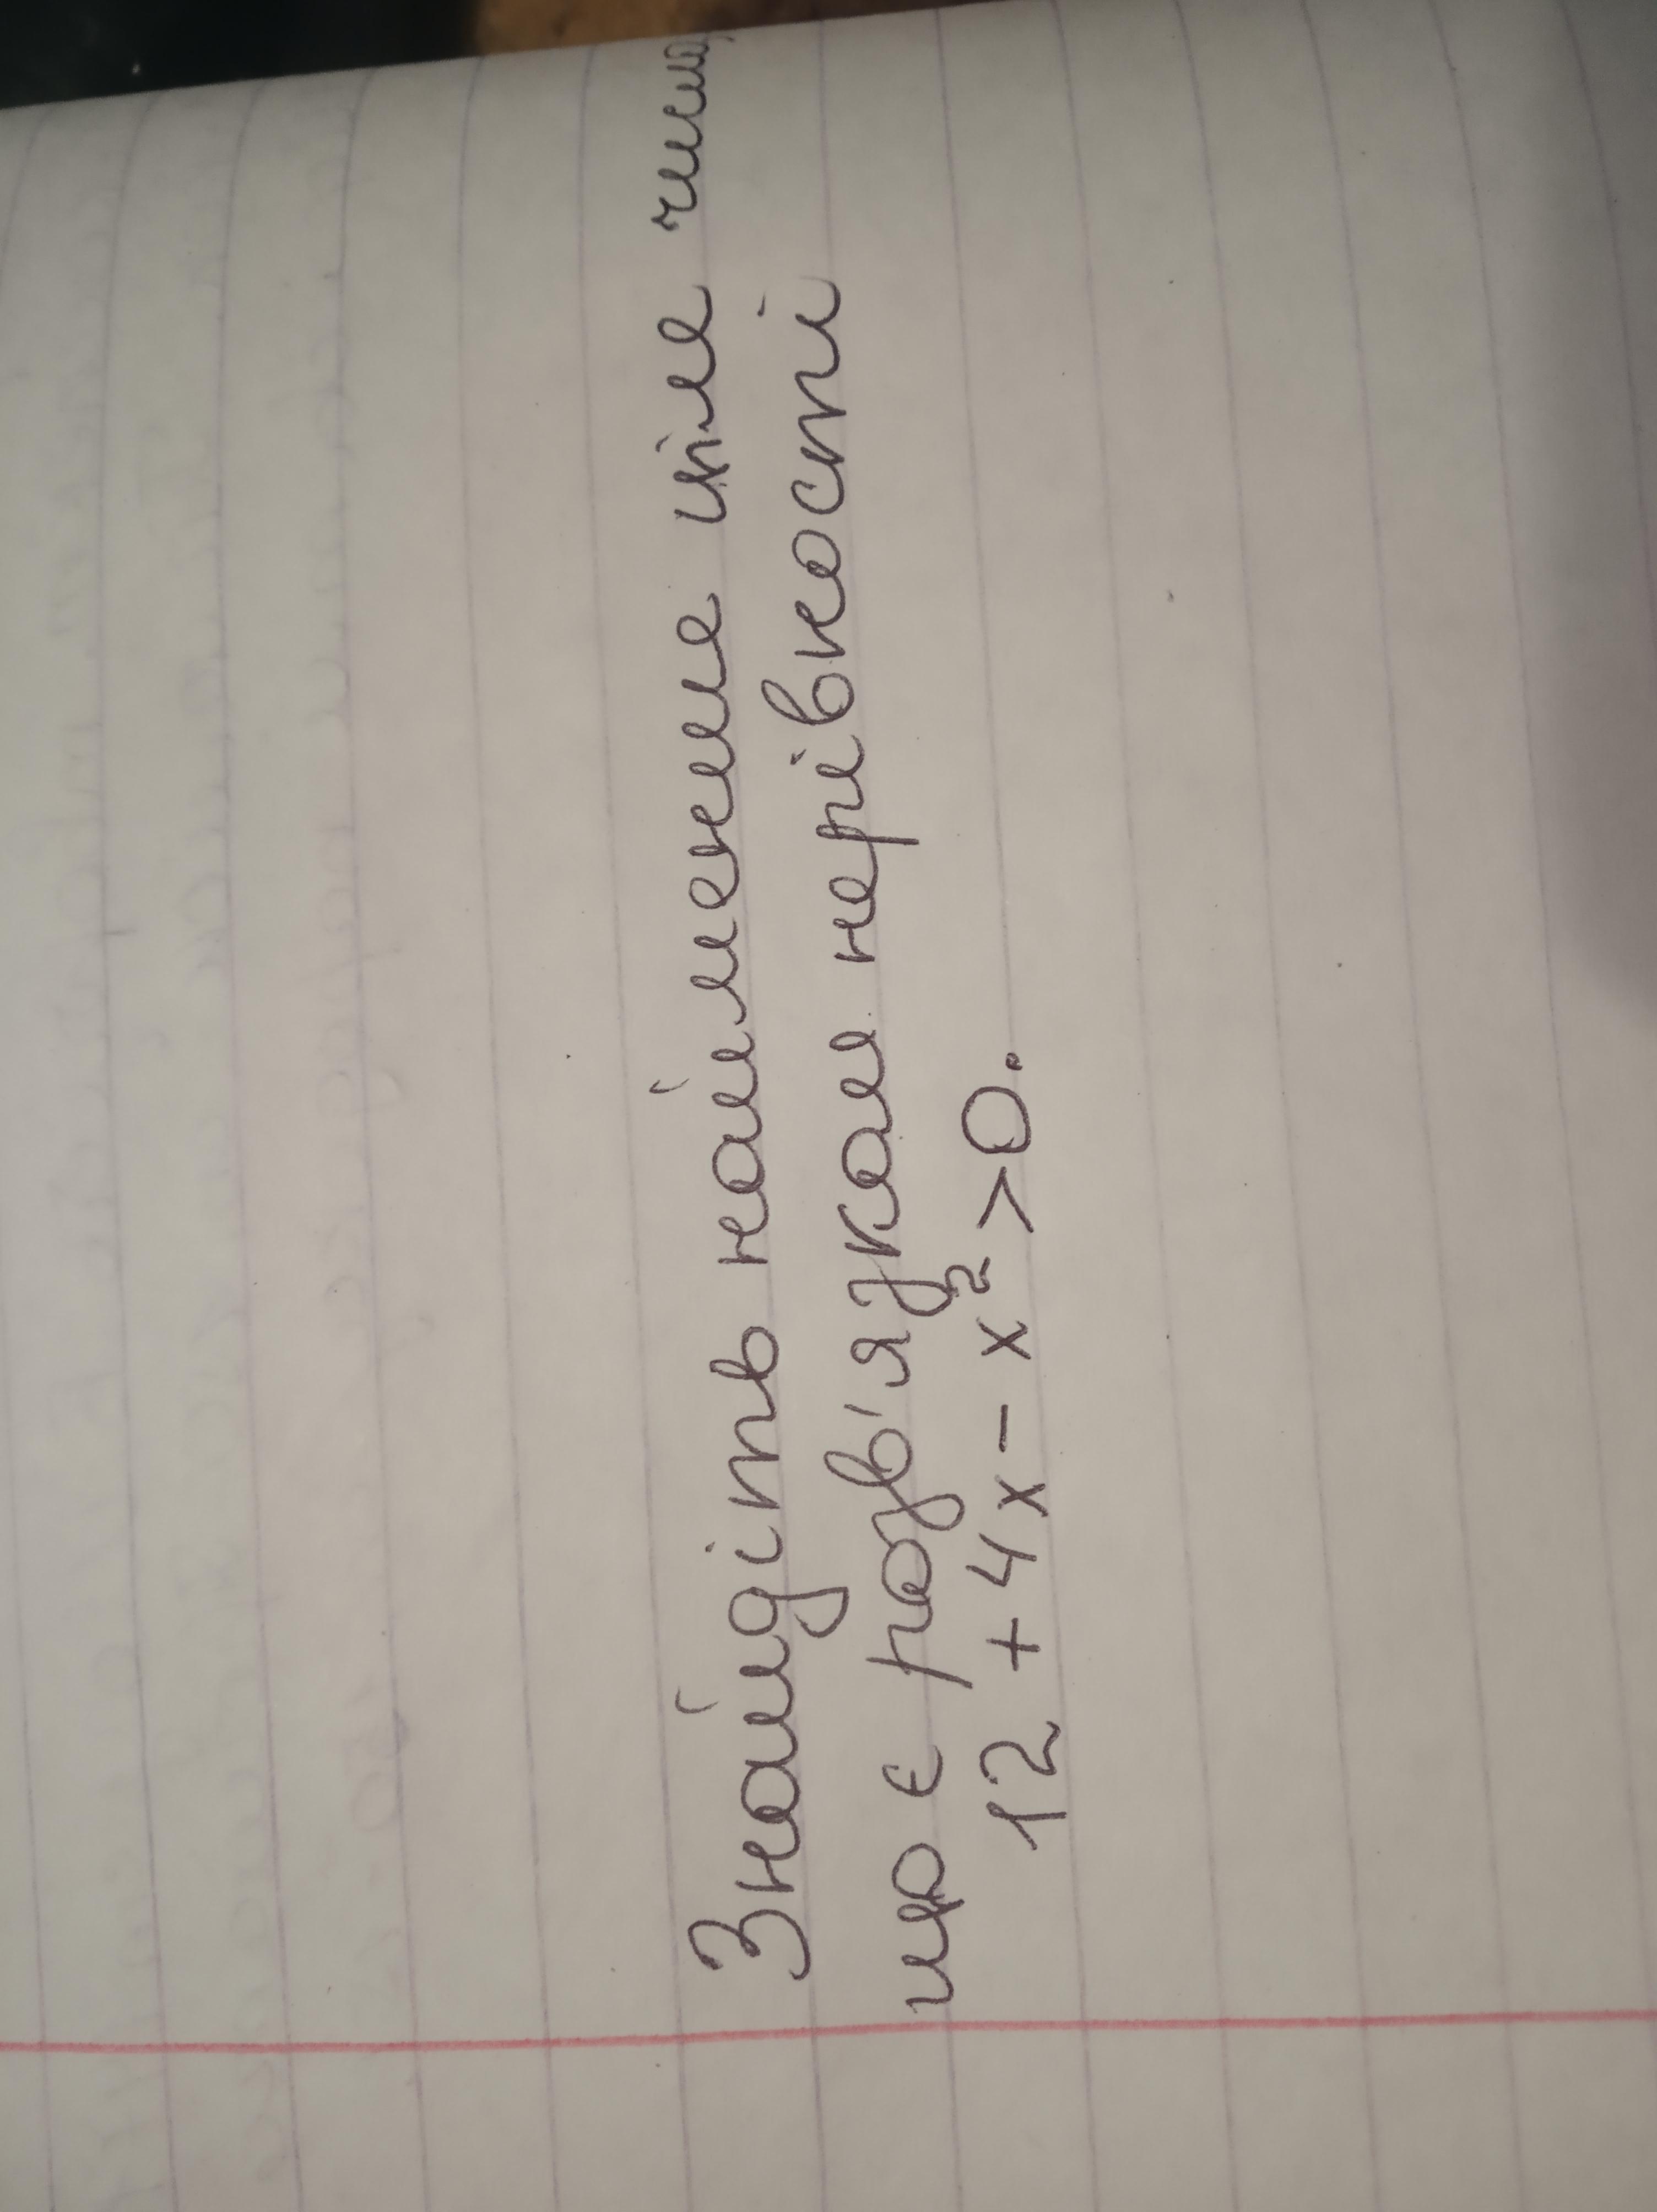 Знайдіть найменше ціле число,
що є розв'язком нерівності
12 + 4x - x² > 0.